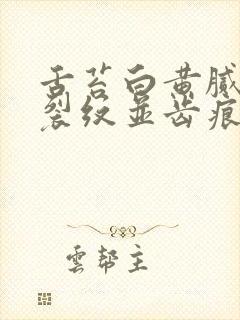 舌苔白黄腻
裂纹並齿痕
雲帮主